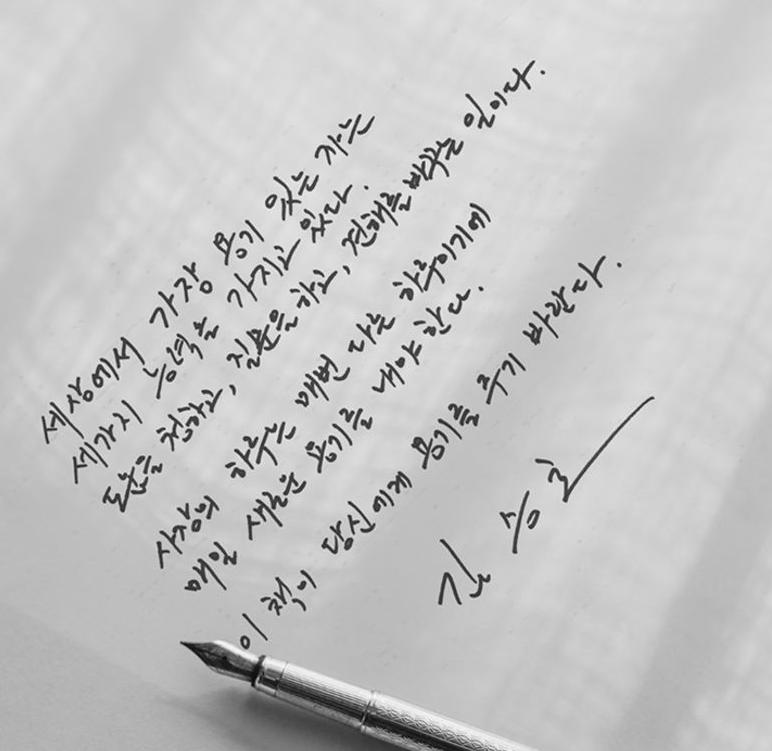 세상에서 가장 용기 있는 자는
세가지 능력을 가지고 있다.
도움을 청하고, 질문을 하고, 견해를 바꾸는 일이다.
사장의 하루는 매번 다른 하루이기에
매일 새로운 용기를 내야 한다.
이 책이 당신에게 용기를 주기 바란다.
김승호